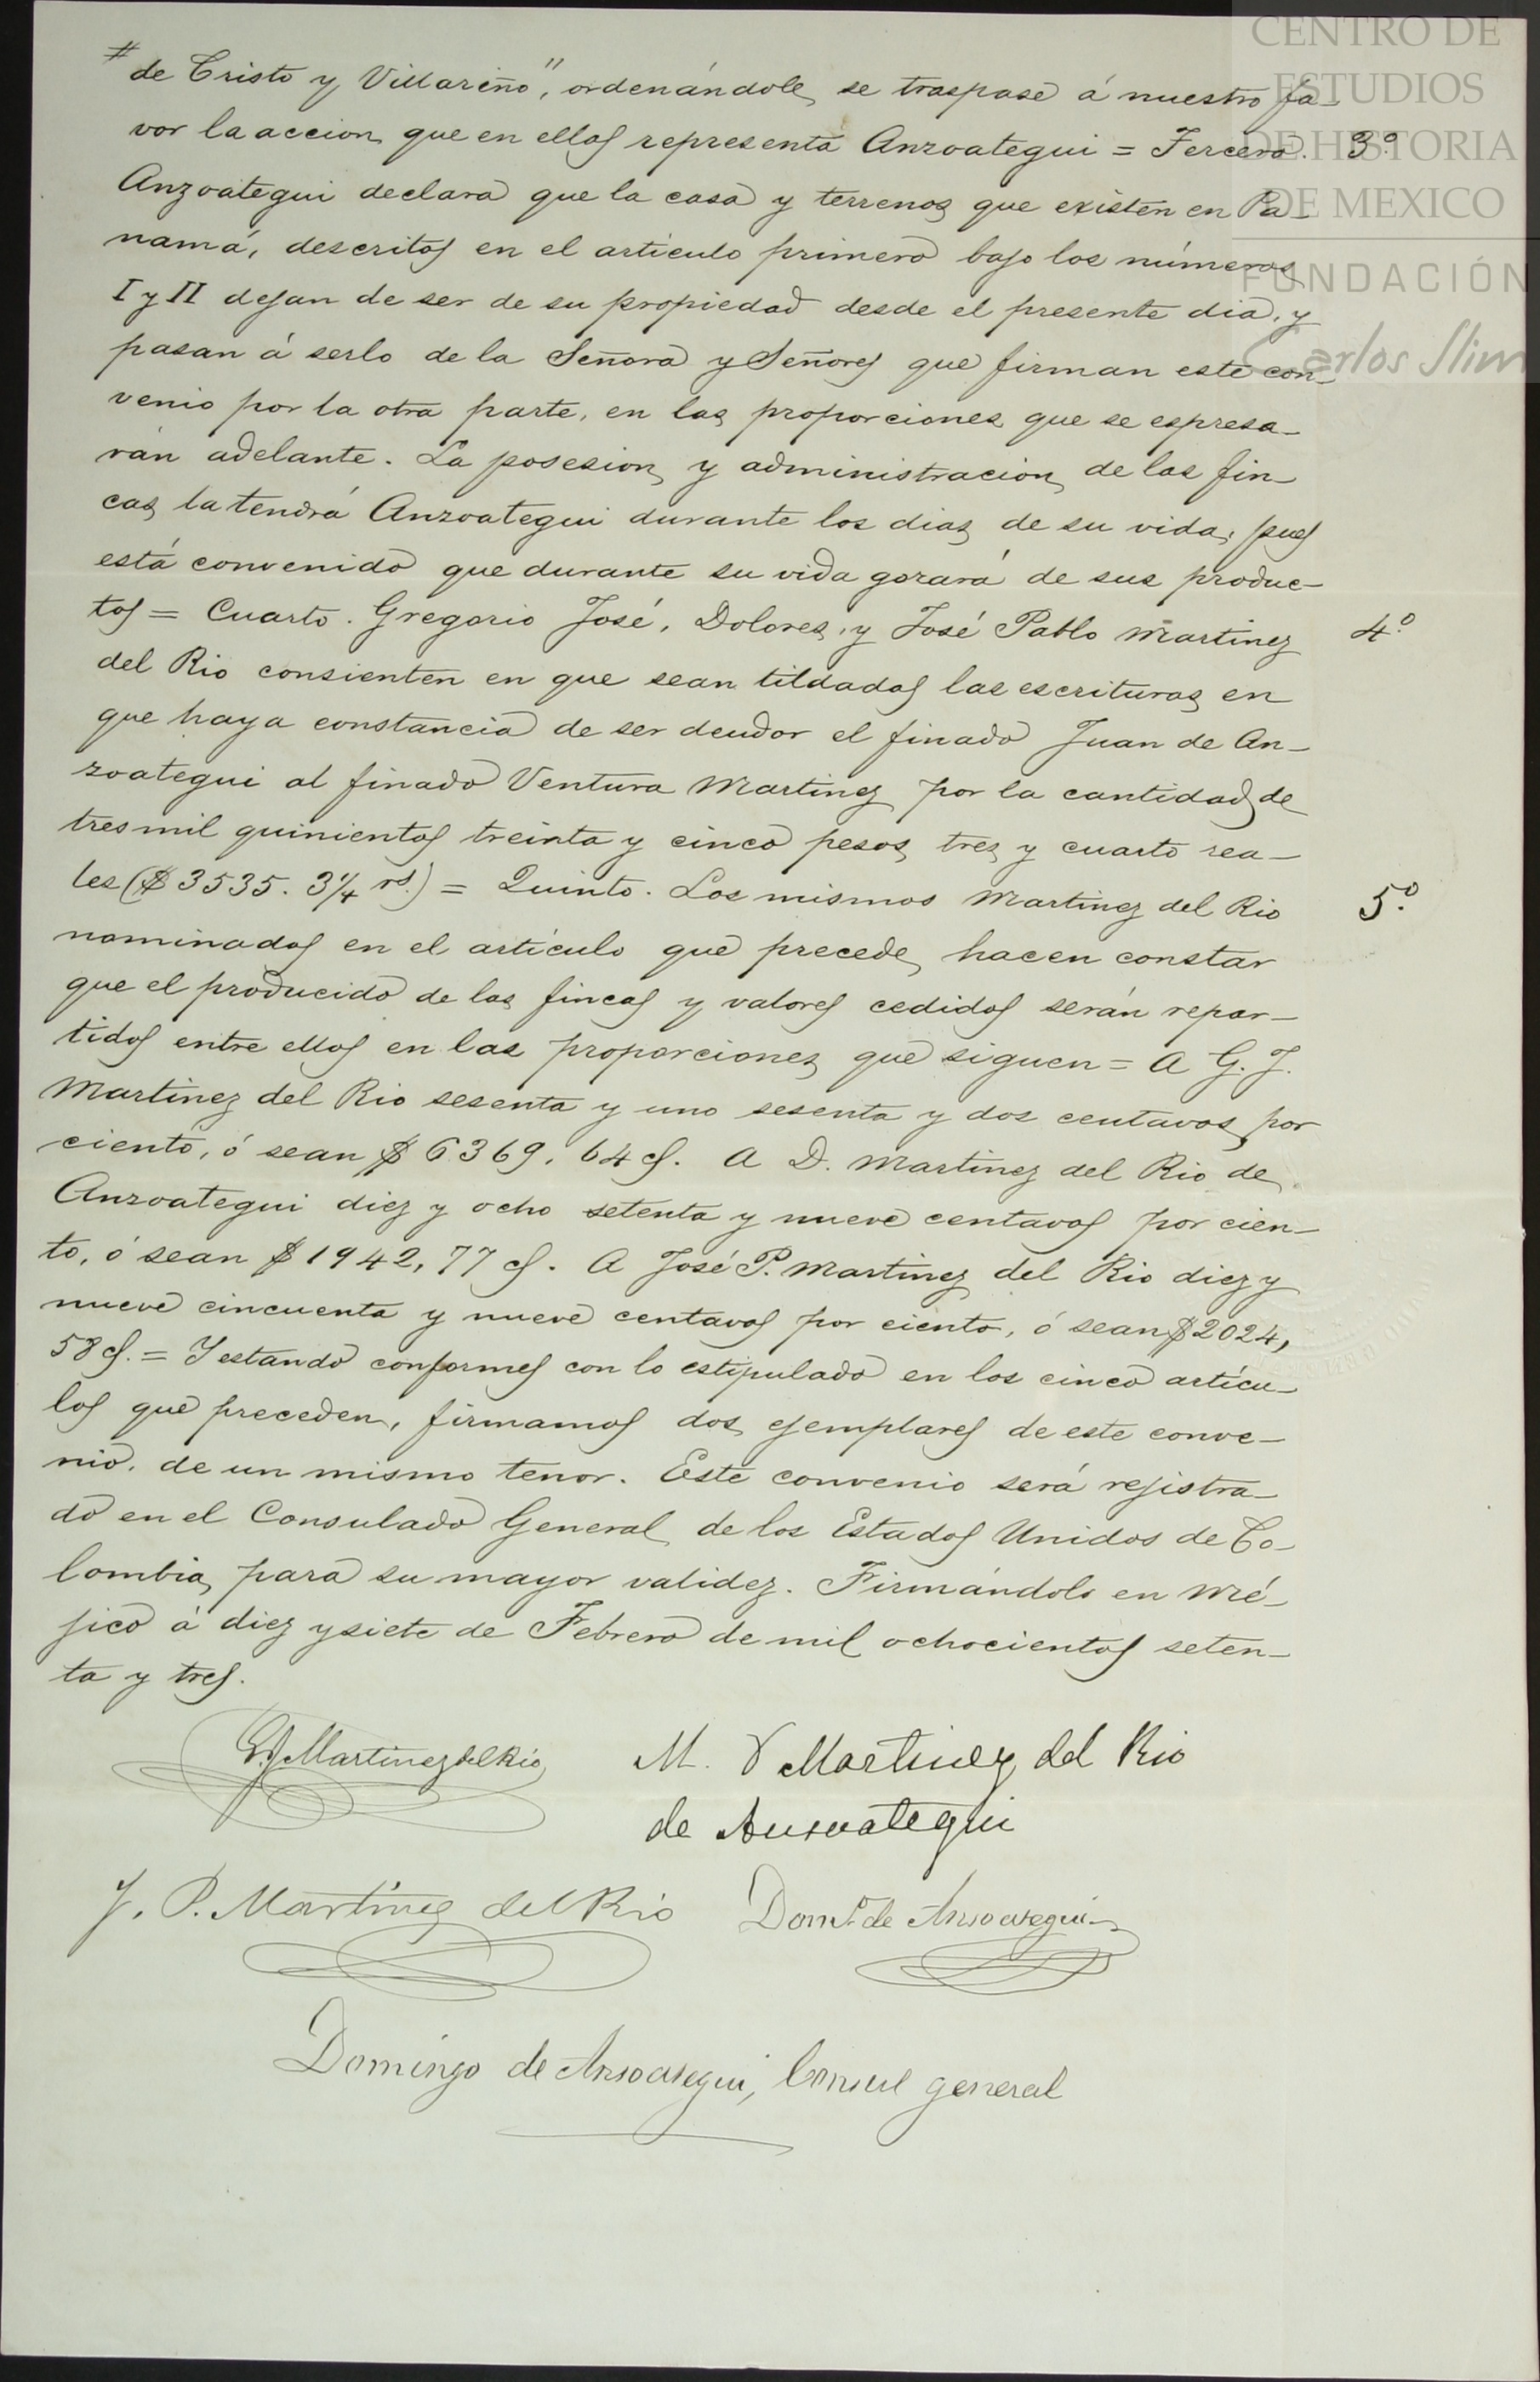 CENTRO DE
ESTUDIOS
DE HISTORIA
DE MEXICO
FUNDACIÓN
Carlos Slim
# de Cristo y Villariño", ordenándole se traspase á nuestro fa-
vor la accion que en ellas representa Anzoategui = Tercero. 3.º
Anzoategui declara que la casa y terrenos que existen en Pa-
namá, descritos en el artículo primero bajo los números
I y II dejan de ser de su propiedad desde el presente dia, y
pasan á serlo de la Señora y Señores que firman este con-
venio por la otra parte, en las proporciones que se espresa-
rán adelante. La posesion y administracion de las fin-
cas la tendrá Anzoategui durante los dias de su vida, pues
está convenido que durante su vida gozará de sus produc-
tos = Cuarto. Gregorio José, Dolores, y José Pablo Martinez 4.º
del Rio consienten en que sean tildadas las escrituras en
que haya constancia de ser deudor el finado Juan de An-
zoategui al finado Ventura Martinez por la cantidad de
tres mil quinientos treinta y cinco pesos tres y cuarto rea-
les ($ 3535. 3¼ rs.) = Quinto. Los mismos Martinez del Rio 5.º
nominados en el artículo que precede, hacen constar
que el producido de las fincas y valores cedidos serán repar-
tidos entre ellos en las proporciones que siguen = A G. J.
Martinez del Rio sesenta y uno sesenta y dos centavos por
ciento, ó sean $ 6369, 64 cs. A D. Martinez del Rio de
Anzoategui diez y ocho setenta y nueve centavos por cien-
to, ó sean $ 1942, 77 cs. A José P. Martinez del Rio diez y
nueve cincuenta y nueve centavos por ciento, ó sean $ 2024,
58 cs. = Y estando conformes con lo estipulado en los cinco artícu-
los que preceden, firmamos dos ejemplares de este conve-
nio, de un mismo tenor. Este convenio será rejistra-
do en el Consulado General de los Estados Unidos de Co-
lombia, para su mayor validez. Firmándolo en Mé-
jico á diez y siete de Febrero de mil ochocientos seten-
ta y tres.
G. J. Martinez del Rio M. D Martinez del Rio
de Ansoategui
J. P. Martínez del Rio Domo. de Ansoategui
Domingo de Ansoategui, Consul general